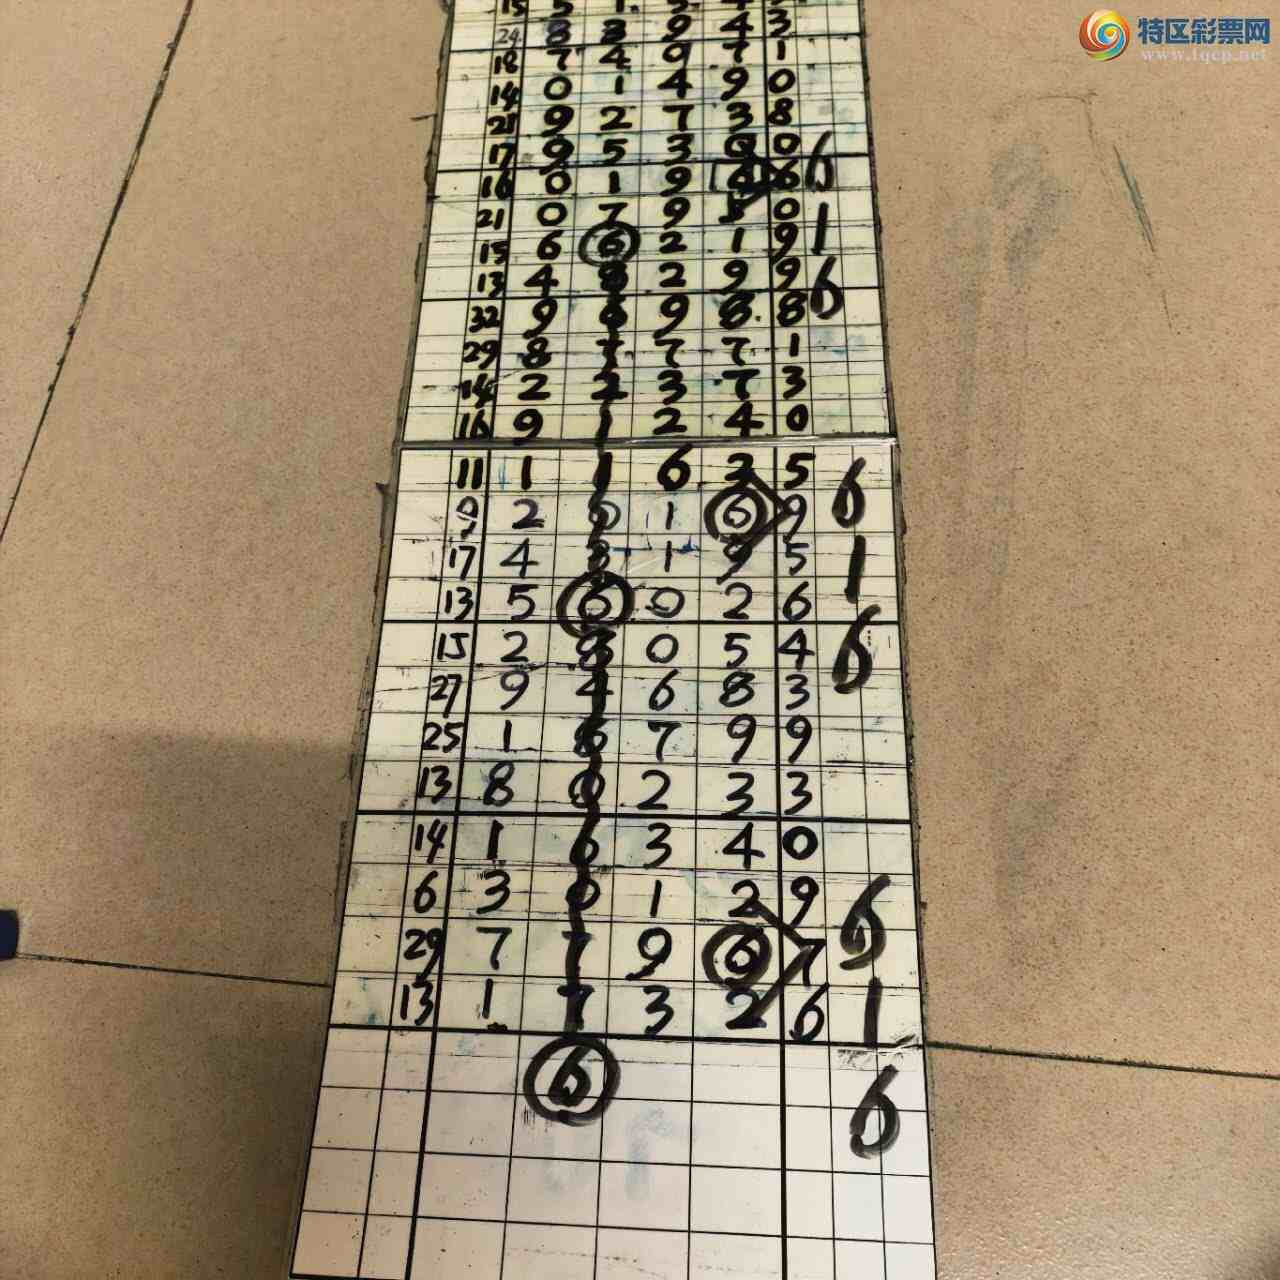 特区彩票网
www.tqcp.net
24 8 3 9 4 3
18 7 4 9 7 1
14 0 1 4 9 0
21 9 2 7 3 8
17 9 5 3 0 0 6
16 0 1 9 6 6
21 0 7 9 5 0 1
15 6 6 2 1 9
13 4 8 2 9 9 6
32 9 6 9 8 8
29 8 7 7 7 1
14 2 2 3 7 3
16 9 1 2 4 0
11 1 1 6 3 5 6
9 2 0 1 6 9
17 4 3 1 9 5 1
13 5 6 0 2 6
15 2 8 0 5 4 6
27 9 4 6 8 3
25 1 8 7 9 9
13 8 0 2 3 3
14 1 6 3 4 0
6 3 0 1 2 9 6
29 7 7 9 6 7
13 1 7 3 2 6 1
6 6